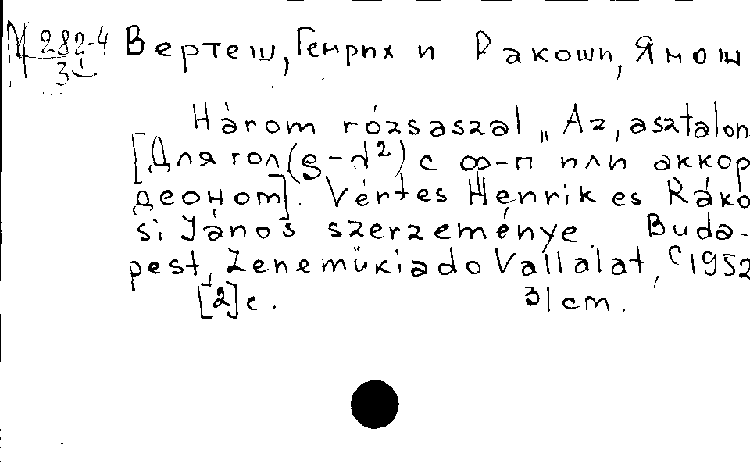 М 282-4
31
Вертеш, Генрих и Ракоши, Янош
Három rózsaszál „Az, asztalon
[Для гол(g-d²) с ф-п или аккор
деоном]. Vértes Henrik es Ráko
si János szerzeménye. Buda-
pest, Zenemükiado Vallalat, c1952
[2]с. 31 cm.